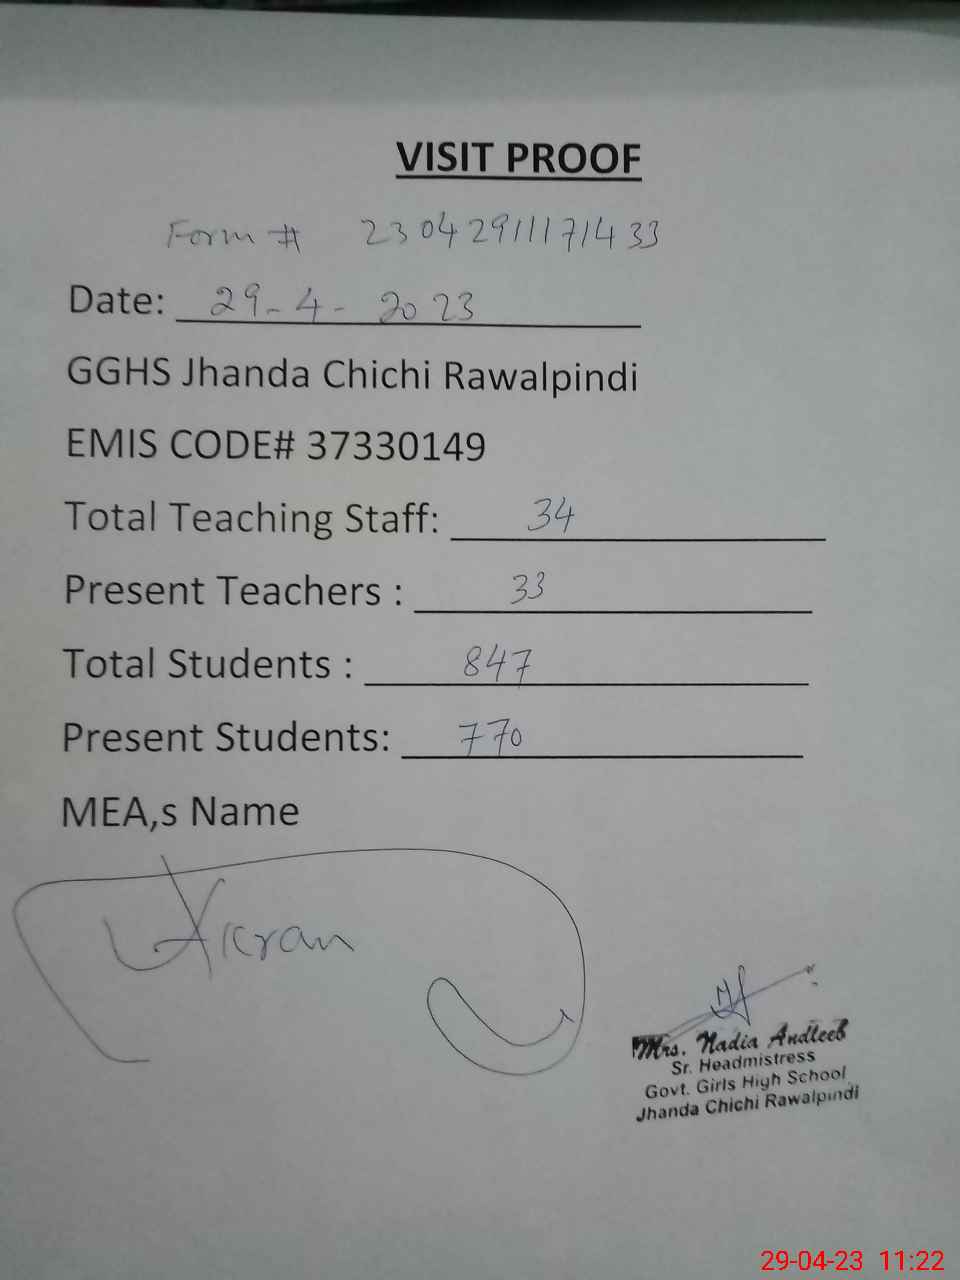 VISIT PROOF
Form # 23042911171433
Date: 29-4-2023
GGHS Jhanda Chichi Rawalpindi
EMIS CODE# 37330149
Total Teaching Staff: 34
Present Teachers : 33
Total Students : 847
Present Students: 770
MEA,s Name
Mrs. Nadia Andleeb
Sr. Headmistress
Govt. Girls High School
Jhanda Chichi Rawalpindi
29-04-23 11:22